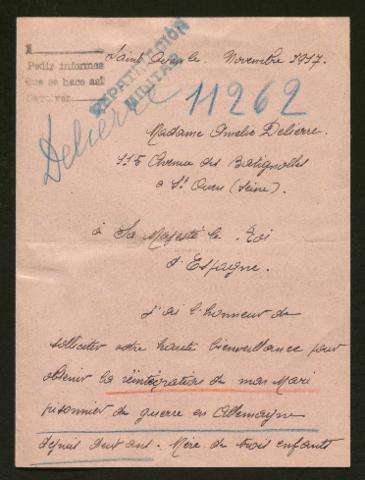 Pedir informes
Que se hace así
REPATRIACIÓN
MILITAR
Saint Ouen le Novembre 1917.
11262
Delierre
Madame Amelie Delierre.
115 Avenue des Batignolles
à St Ouen (Seine).
à Sa Majesté le Roi
d'Espagne.
J'ai l'honneur de
solliciter votre haute bienveillance pour
obtenir la réintégration de mon Mari
prisonnier de guerre en Allemagne
depuis deux ans. Mère de trois enfants